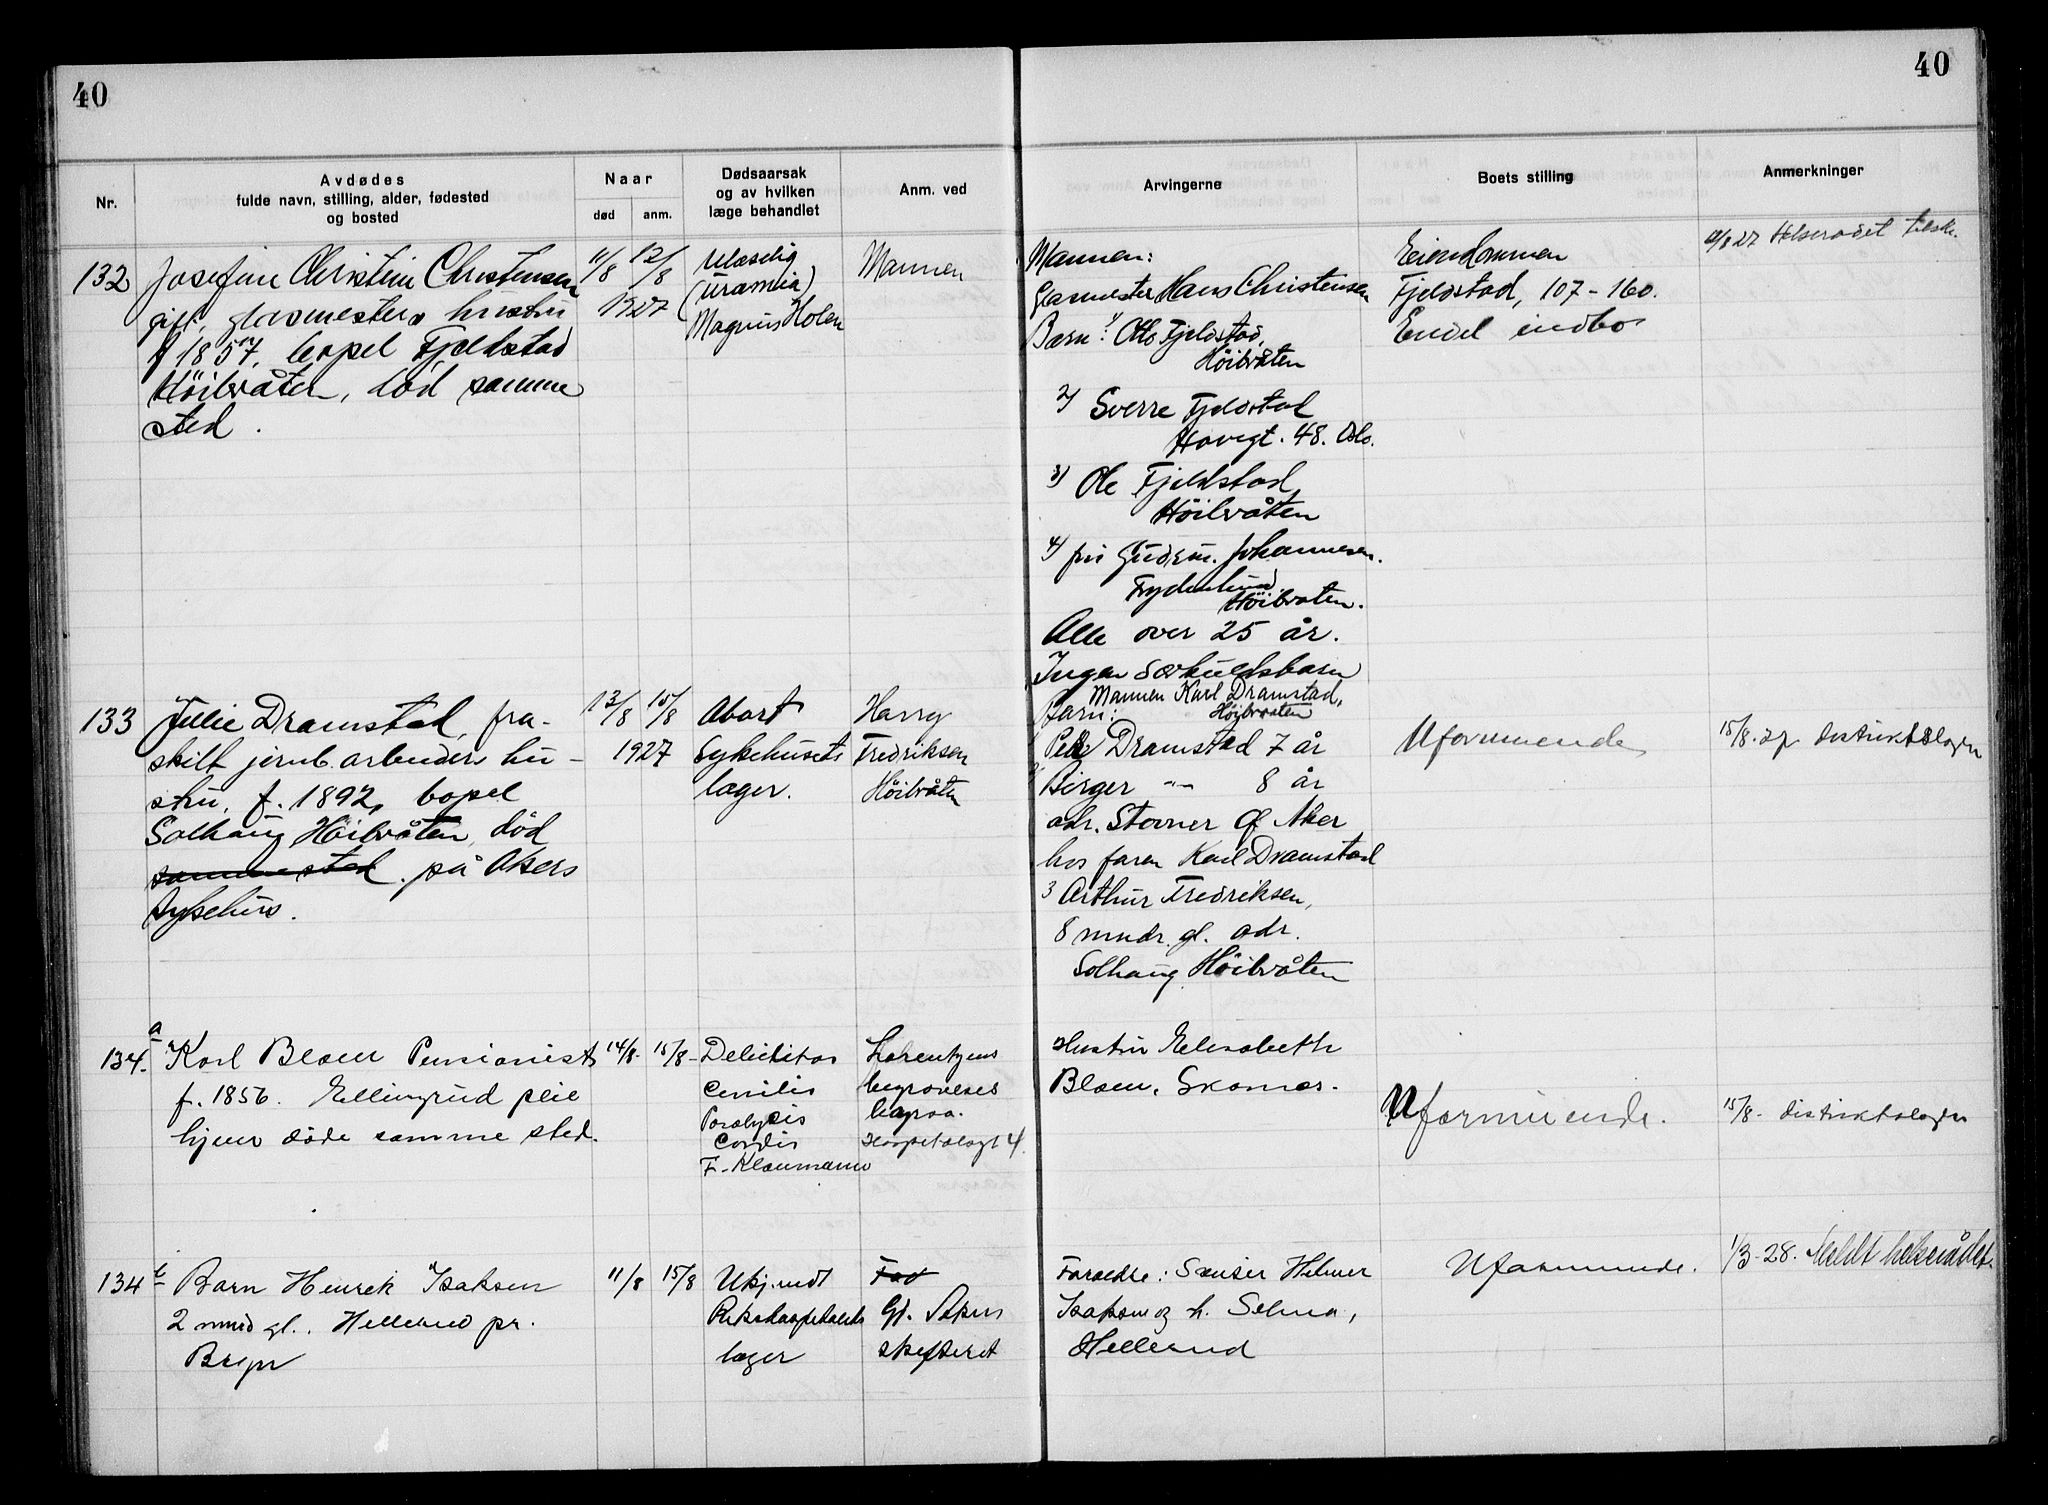 40
40
Nr.
Avdødes
fulde navn, stilling, alder, fødested
og bosted
Naar
død
anm.
Dødsaarsak
og av hvilken
læge behandlet
Anm. ved
Arvingerne
Boets stilling
Anmerkninger
132
Josefine Christine Christensen
gift, glasmesters hustru
f 1857, bopel Fjeldstad
Höibråten, död samme
sted.
11/8 12/8
1927
Ulæselig
(Uræmia)
Magnus Holen
Mannen
Mannen:
Glasmester Hans Christensen
Barn: 1) Otto Fjeldstad,
Höibråten
2) Sverre Fjeldstad
Havegt. 48. Oslo.
3) Ole Fjeldstad
Höibråten
4) fru Gudrun Johannesen.
Frydenlund
Höibråten.
Alle over 25 år.
Ingen særkuldsbarn
Eiendommen
Fjeldstad, 107-160.
Endel indbo
/8 27 Helserådet tilskr.
133
Julie Dramstad, fra-
skilt jernb. arbeiders hu-
stru, f. 1892, bopel
Solhaug Höibråten, död
sammested. på Akers
sykehus.
13/8 15/8
1927
Abort
Sykehusets
læger.
Harry
Fredriksen
Höibråten
Mannen Karl Dramstad,
Höibråten
Barn:
Dramstad 7 år
2) Birger -"- 8 år
adr. Stovner Ø Aker
hos faren Karl Dramstad
3 Arthur Fredriksen,
8 mndr. gl. adr.
Solhaug Höibråten
Uformuende
15/8.27 distriktslægen
134 a
Karl Blom Pensionist
f. 1856. Ellingsrud pleie
hjem døde samme sted.
14/8- 15/8-
Debilitas
senilis
Paralysis
Cordis
F. Klaumann
Lorentzens
begravelses
byraa.
Hospitalsgt 4.
Hustru Elisabeth
Blom.
Uformuende.
15/8- distriktslægen
134 b
Barn Henrik Isaksen
2 mnd gl., Hellerud pr.
Bryn
11/8 15/8
Ukjendt
Rikshospitalets
læger
Far
Gj. Akers
skifteret
Forældre: Helmer
Isaksen og h. Selma,
Hellerud
Uformuende.
1/3-28. Meldt helserådet.